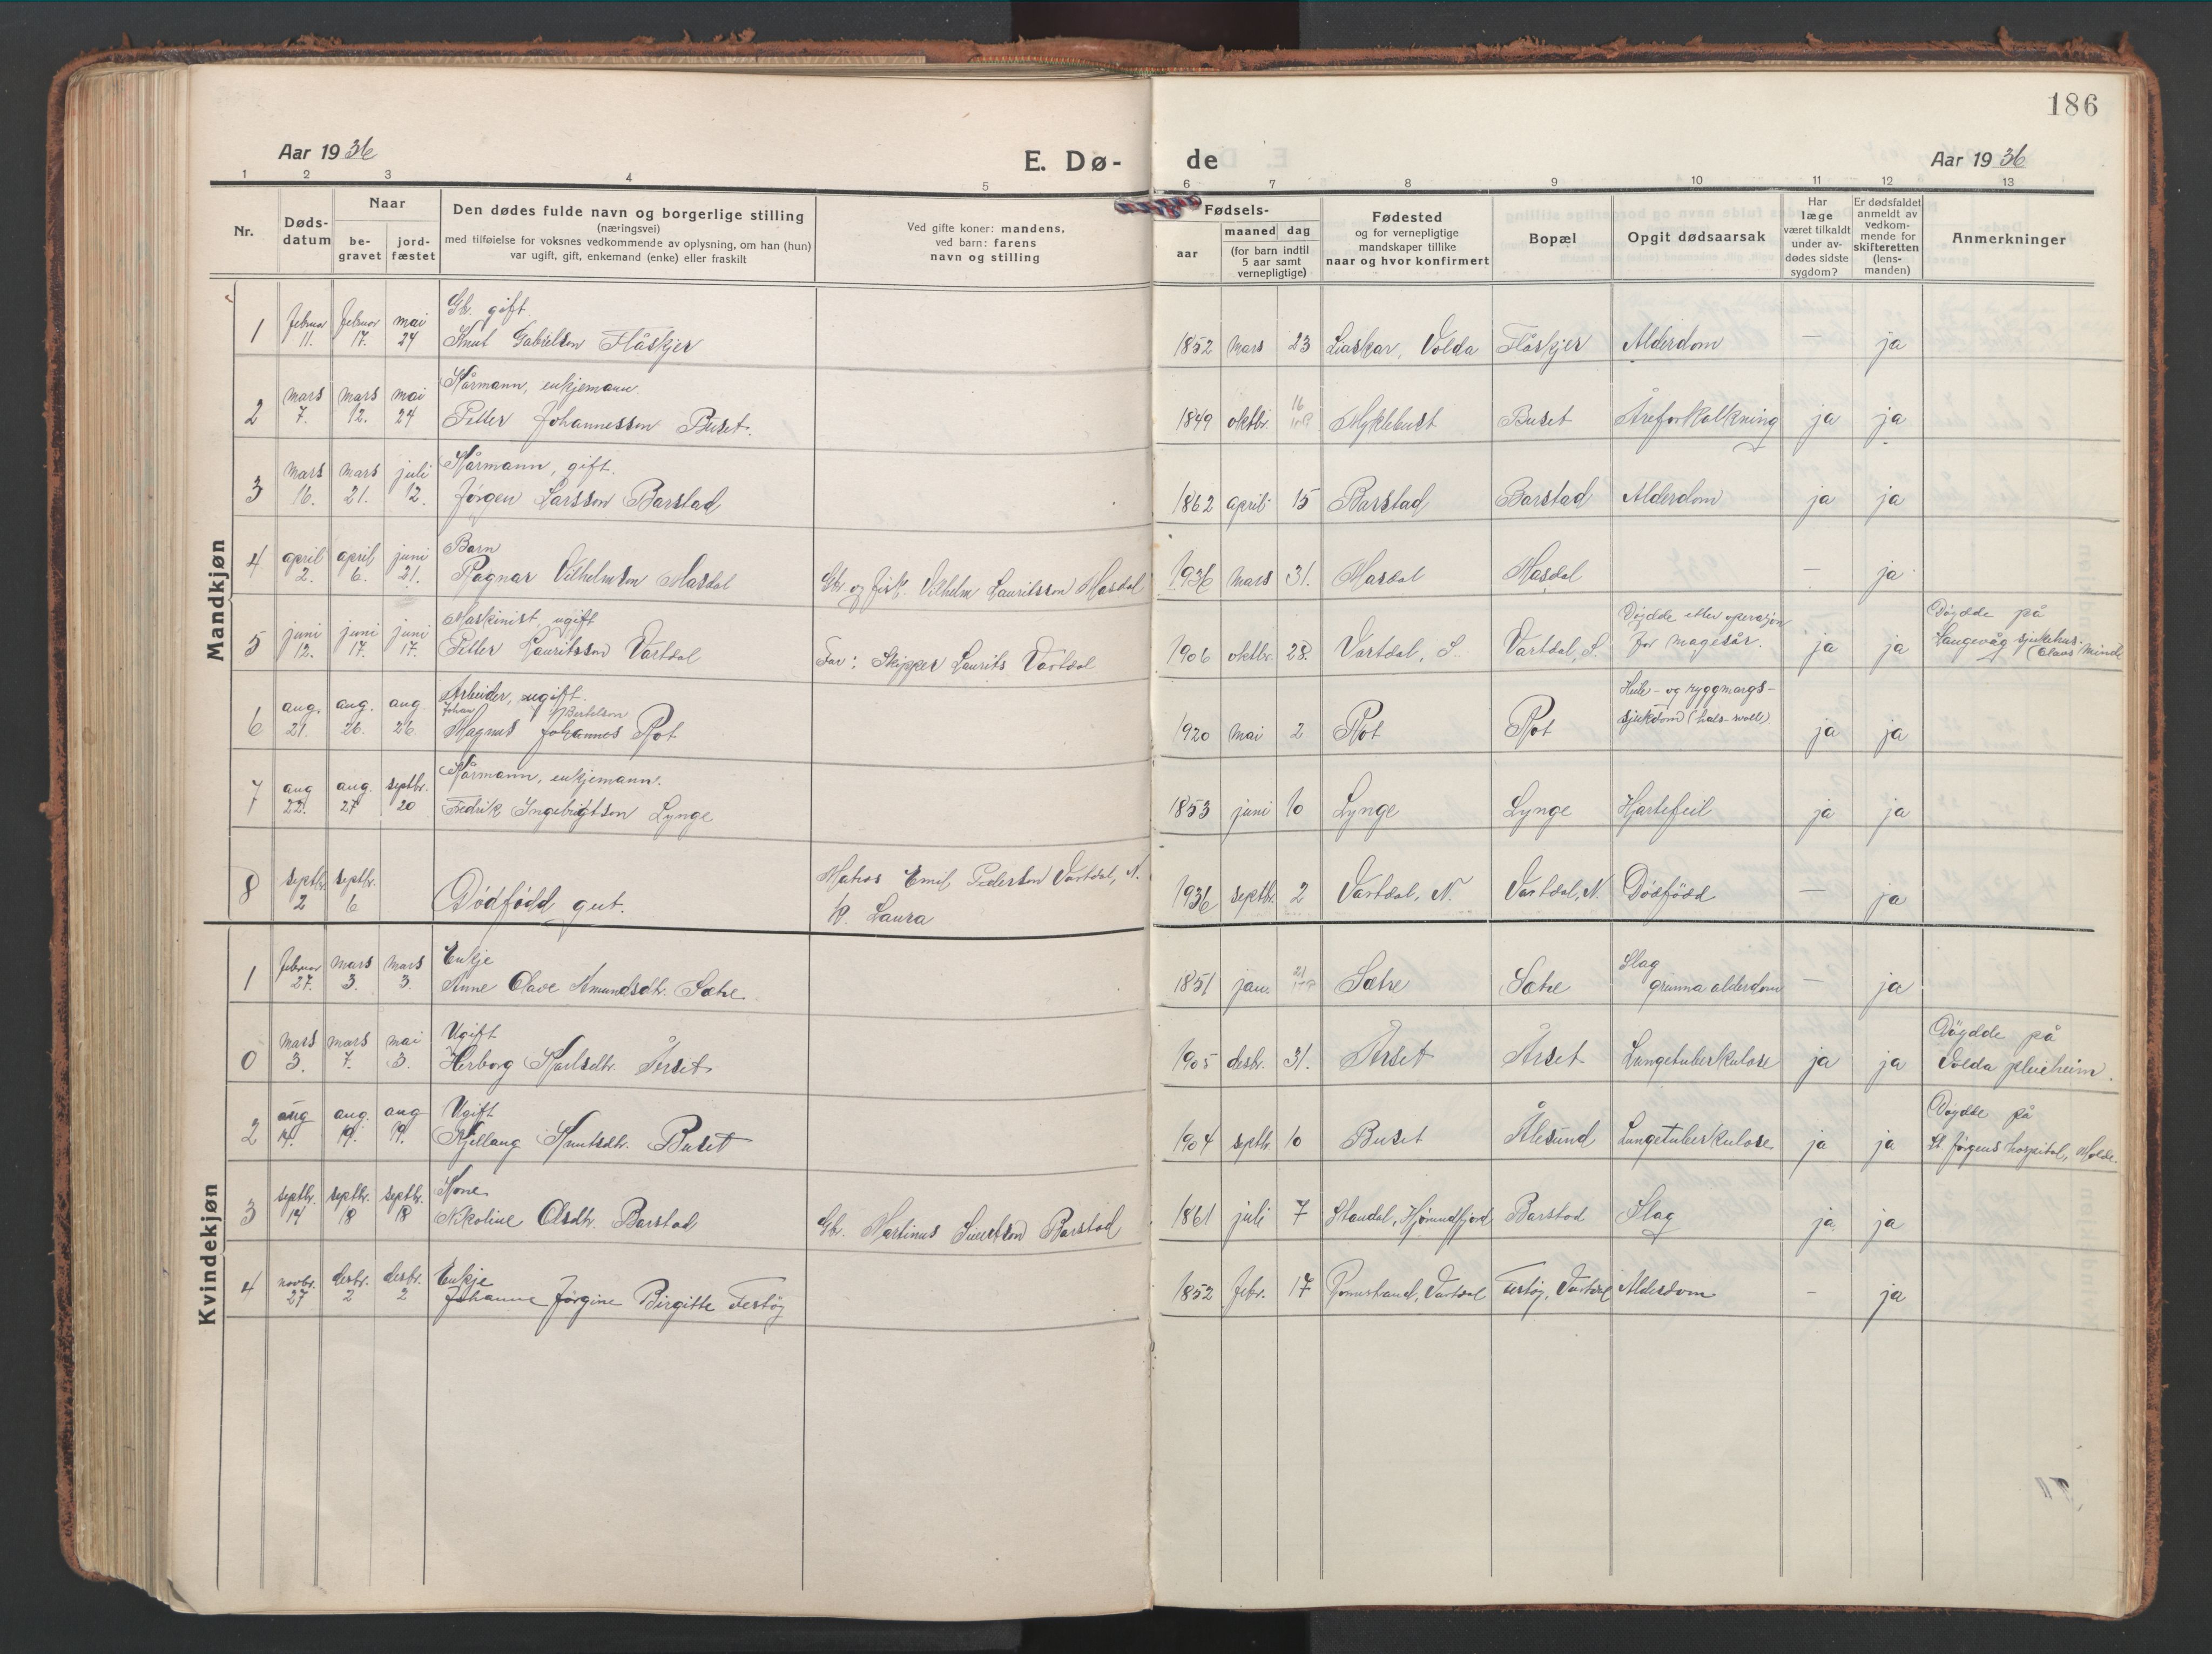 186
Aar 1936
E. Dø-
de
Aar 1936
1 2 3 4 5 6 7 8 9 10 11 12 13
Nr.
Døds-
datum
Naar
be-
gravet
jord-
fæstet
Den dødes fulde navn og borgerlige stilling
(næringsvei)
med tilføielse for voksnes vedkommende av oplysning, om han (hun)
var ugift, gift, enkemand (enke) eller fraskilt
Ved gifte koner: mandens,
ved barn: farens
navn og stilling
Fødsels-
aar
maaned dag
(for barn indtil
5 aar samt
vernepligtige)
Fødested
og for vernepligtige
mandskaper tillike
naar og hvor konfirmert
Bopæl
Opgit dødsaarsak
Har
læge
været tilkaldt
under av-
dødes sidste
sygdom?
Er dødsfaldet
anmeldt av
vedkom-
mende for
skifteretten
(lens-
manden)
Anmerkninger
Mandkjøn
1 februar 11. februar 17. mai 24
Gb. gift
Knut Gabrielson Flåskjer
1852 mars 23 Liaskar, Volda Flåskjer Alderdom — ja
2 mars 7. mars 12. mai 24
Kårmann, enkjemann.
Petter Johannesson Buset.
1849 oktbr. 16 Myklebust Buset Åreforkalkning ja ja
3 mars 16. mars 21. juli 12.
Kårmann, gift.
Jørgen Larsson Barstad
1862 april 15 Barstad Barstad Alderdom ja ja
4 april 2. april 6. juni 21.
Barn
Ragnar Vilhelmson Masdal
Gb. og fisk. Vilhelm Lauritsson Masdal
1936 mars 31. Masdal Masdal — ja
5 juni 12. juni 17. juni 17.
Maskinist, ugift
Petter Lauritsson Vartdal
Far: Skipper Laurits Vartdal
1906 oktbr. 28. Vartdal, S. Vartdal, S.
Døydde etter operasjon
for magesår.
ja ja
Døydde på
Langevåg sjukehus.
6 aug. 21. aug. 26. aug 26.
Arbeider, ugift.
Johan Bertelson
Magnus Johannes Rot
1920 mai 2 Rot Rot
Hule- og ryggmargs-
sjukdom
ja ja
7 aug 22. aug. 27 septbr. 20
Kårmann, enkjemann.
Fredrik Ingebrigtson Lynge
1853 juni 10 Lynge Lynge Hjartefeil ja ja
8 septbr. 2 septbr. 6
Dødfødd gut.
Matros Emil Pederson Vartdal, N.
k. Laura
1936 septbr. 2 Vartdal, N. Vartdal, N. Dødfødd — ja
Kvindekjøn
1 februar 27. mars 3. mars 3.
Enkje
Anne Olave Amundsdtr. Sætre
1851 jan. 21 Sætre Sætre
Slag
grunna alderdom
— ja
0 mars 3. mars 7. mai 3.
Ugift
Herborg Karlsdtr. Årset
1905 desbr. 31. Årset Årset Lungetuberkulose ja ja
Døydde på
Volda pleieheim.
2 aug 14. aug. 19. aug 19.
Ugift
Kjellaug Knutsdtr. Buset
1904 septbr. 10 Buset Ålesund Lungetuberkulose ja ja
Døydde på
St. Jørgens hospital, Molde.
3 septbr. 14 septbr. 18 septbr. 18
Kone
Nikoline Olsdtr. Barstad
Gb. Martinus Sivertson Barstad
1861 juli 7 Standal, Hjørundfjord Barstad Slag ja ja
4 novbr. 27 desbr. 2 desbr. 2
Enkje
Johanne Jørgine Birgitte Festøy
1852 febr. 17 Vartdal Festøy, Vartdal Alderdom — ja